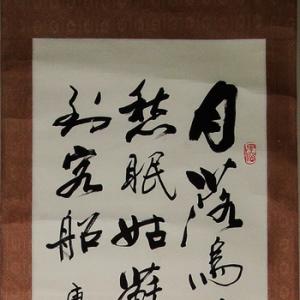 月落烏
愁眠姑蘇
到客船
唐